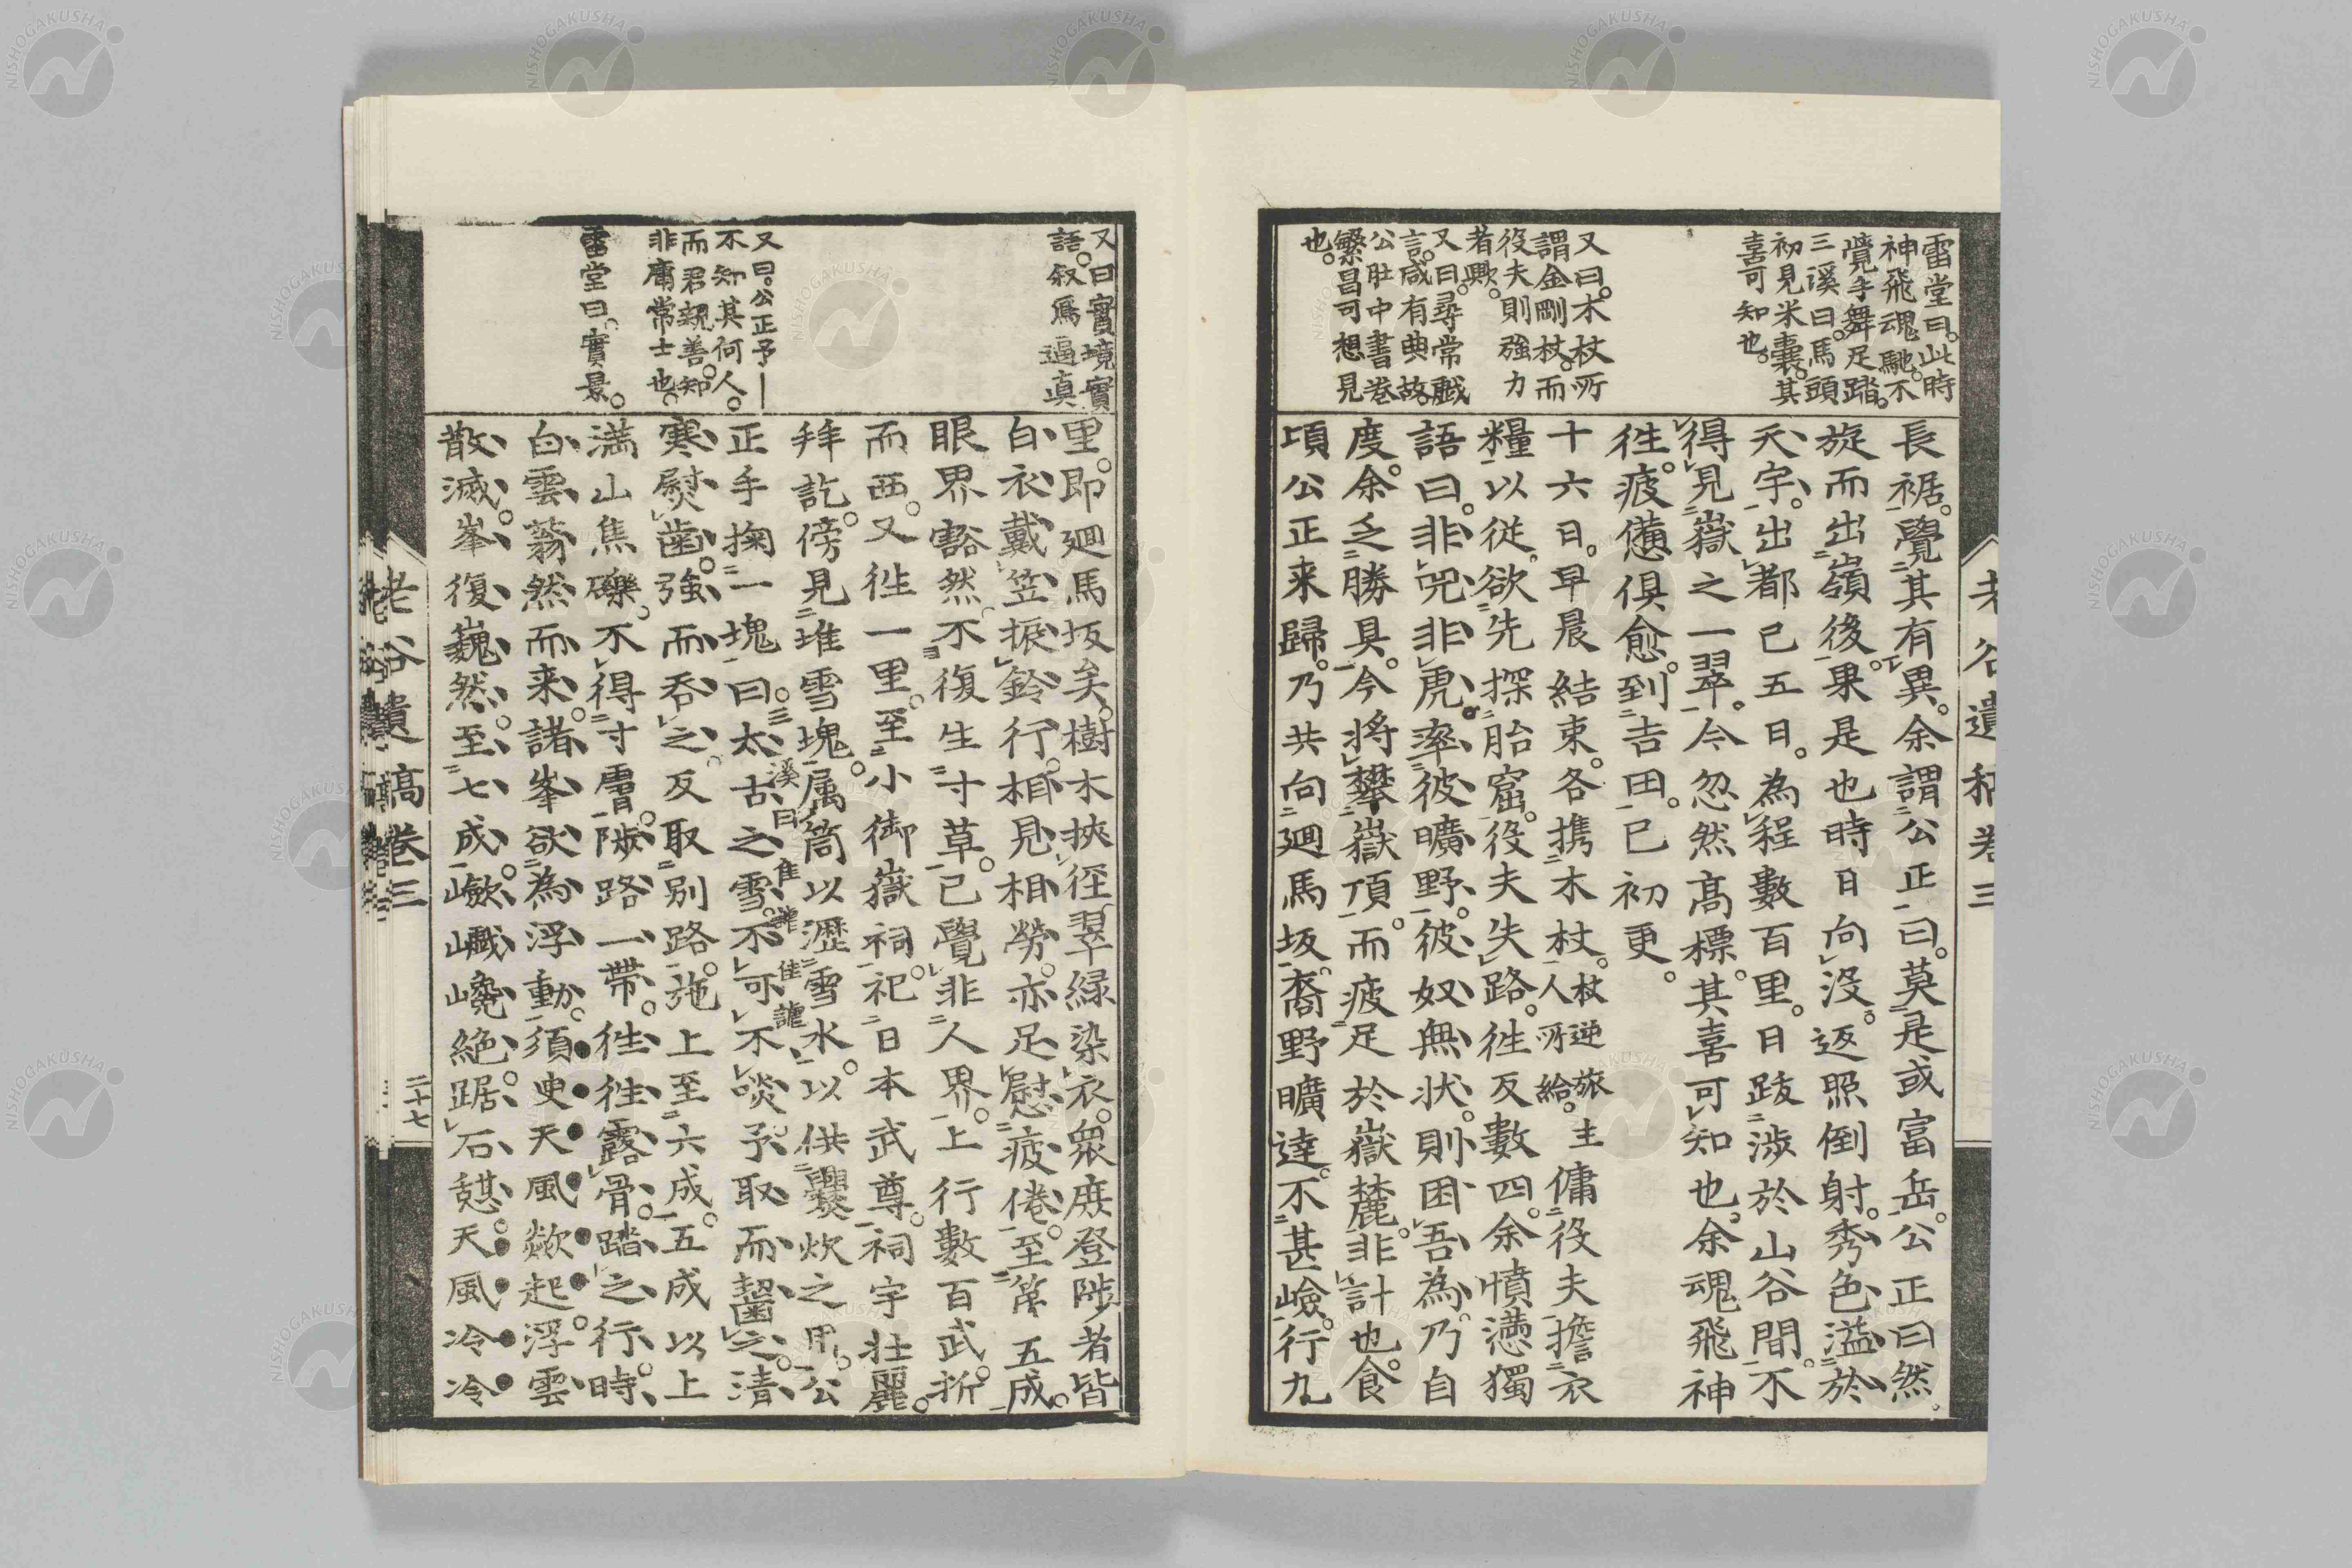 雷堂曰。此時
神飛魂馳。不
覺手舞足踏。
三溪曰。馬頭
初見米囊。其
喜可知也。
又曰。木杖所
謂金剛杖。而
役夫則強力
者歟。
又曰。尋常戲
言。咸有典故。
公肚中書卷
繁昌可想見
也。
長裾。覺其有異。余謂公正曰。莫是或富岳。公正曰然。
旋而出嶺後。果是也時日向没。返照倒射。秀色溢於
天宇。出都已五日。為程數百里。日跋渉於山谷間。不
得見嶽之一翠。今忽然高標。其喜可知也。余魂飛神
徃。疲憊俱愈。到吉田。已初更。
十六日。早晨結束。各携木杖。杖逆旅主人所給。傭役夫擔衣
糧以從。欲先探胎窟。役夫失路。徃反數四。余憤懣獨
語曰。非兕非虎。率彼曠野。彼奴無状。則困吾為。乃自
度。余乏勝具。今将攀嶽頂。而疲足於嶽麓。非計也。食
頃公正来歸。乃共向廻馬坂。裔野曠達。不甚嶮。行九
老谷遺稿卷三
又曰實境實
語。叙爲逼真
又曰。公正予一
不知其何人。
而君親善。知
非庸常士也。
雷堂曰。實景。
里。即廻馬坂矣。樹木挾徑翠緑染衣。衆庶登陟者皆
白衣戴笠振鈴行。相見相勞。亦足慰疲倦。至第五成。
眼界豁然。不復生寸草。已覺非人界。上行數百武。折
而西。又徃一里。至小御嶽祠。祀日本武尊。祠宇壮麗。
拜訖。傍見堆雪塊。属筒以瀝雪水。以供爨炊之用。公
正手掬一塊曰。太古之雪。不可不啖。予取而齧之。清
三溪曰佳謔佳謔
寒熨齒。強而呑之。反取別路。施上至六成。五成以上
満山焦礫。不得寸膚。陟路一帶。徃徃露骨。踏之行。時
白雲蓊然而来。諸峯欲為浮動。須臾天風欻起。浮雲
散滅。峯復巍然。至七成。嶮巇巉絶。踞石憩天風冷冷
老谷遺稿卷三
二十七